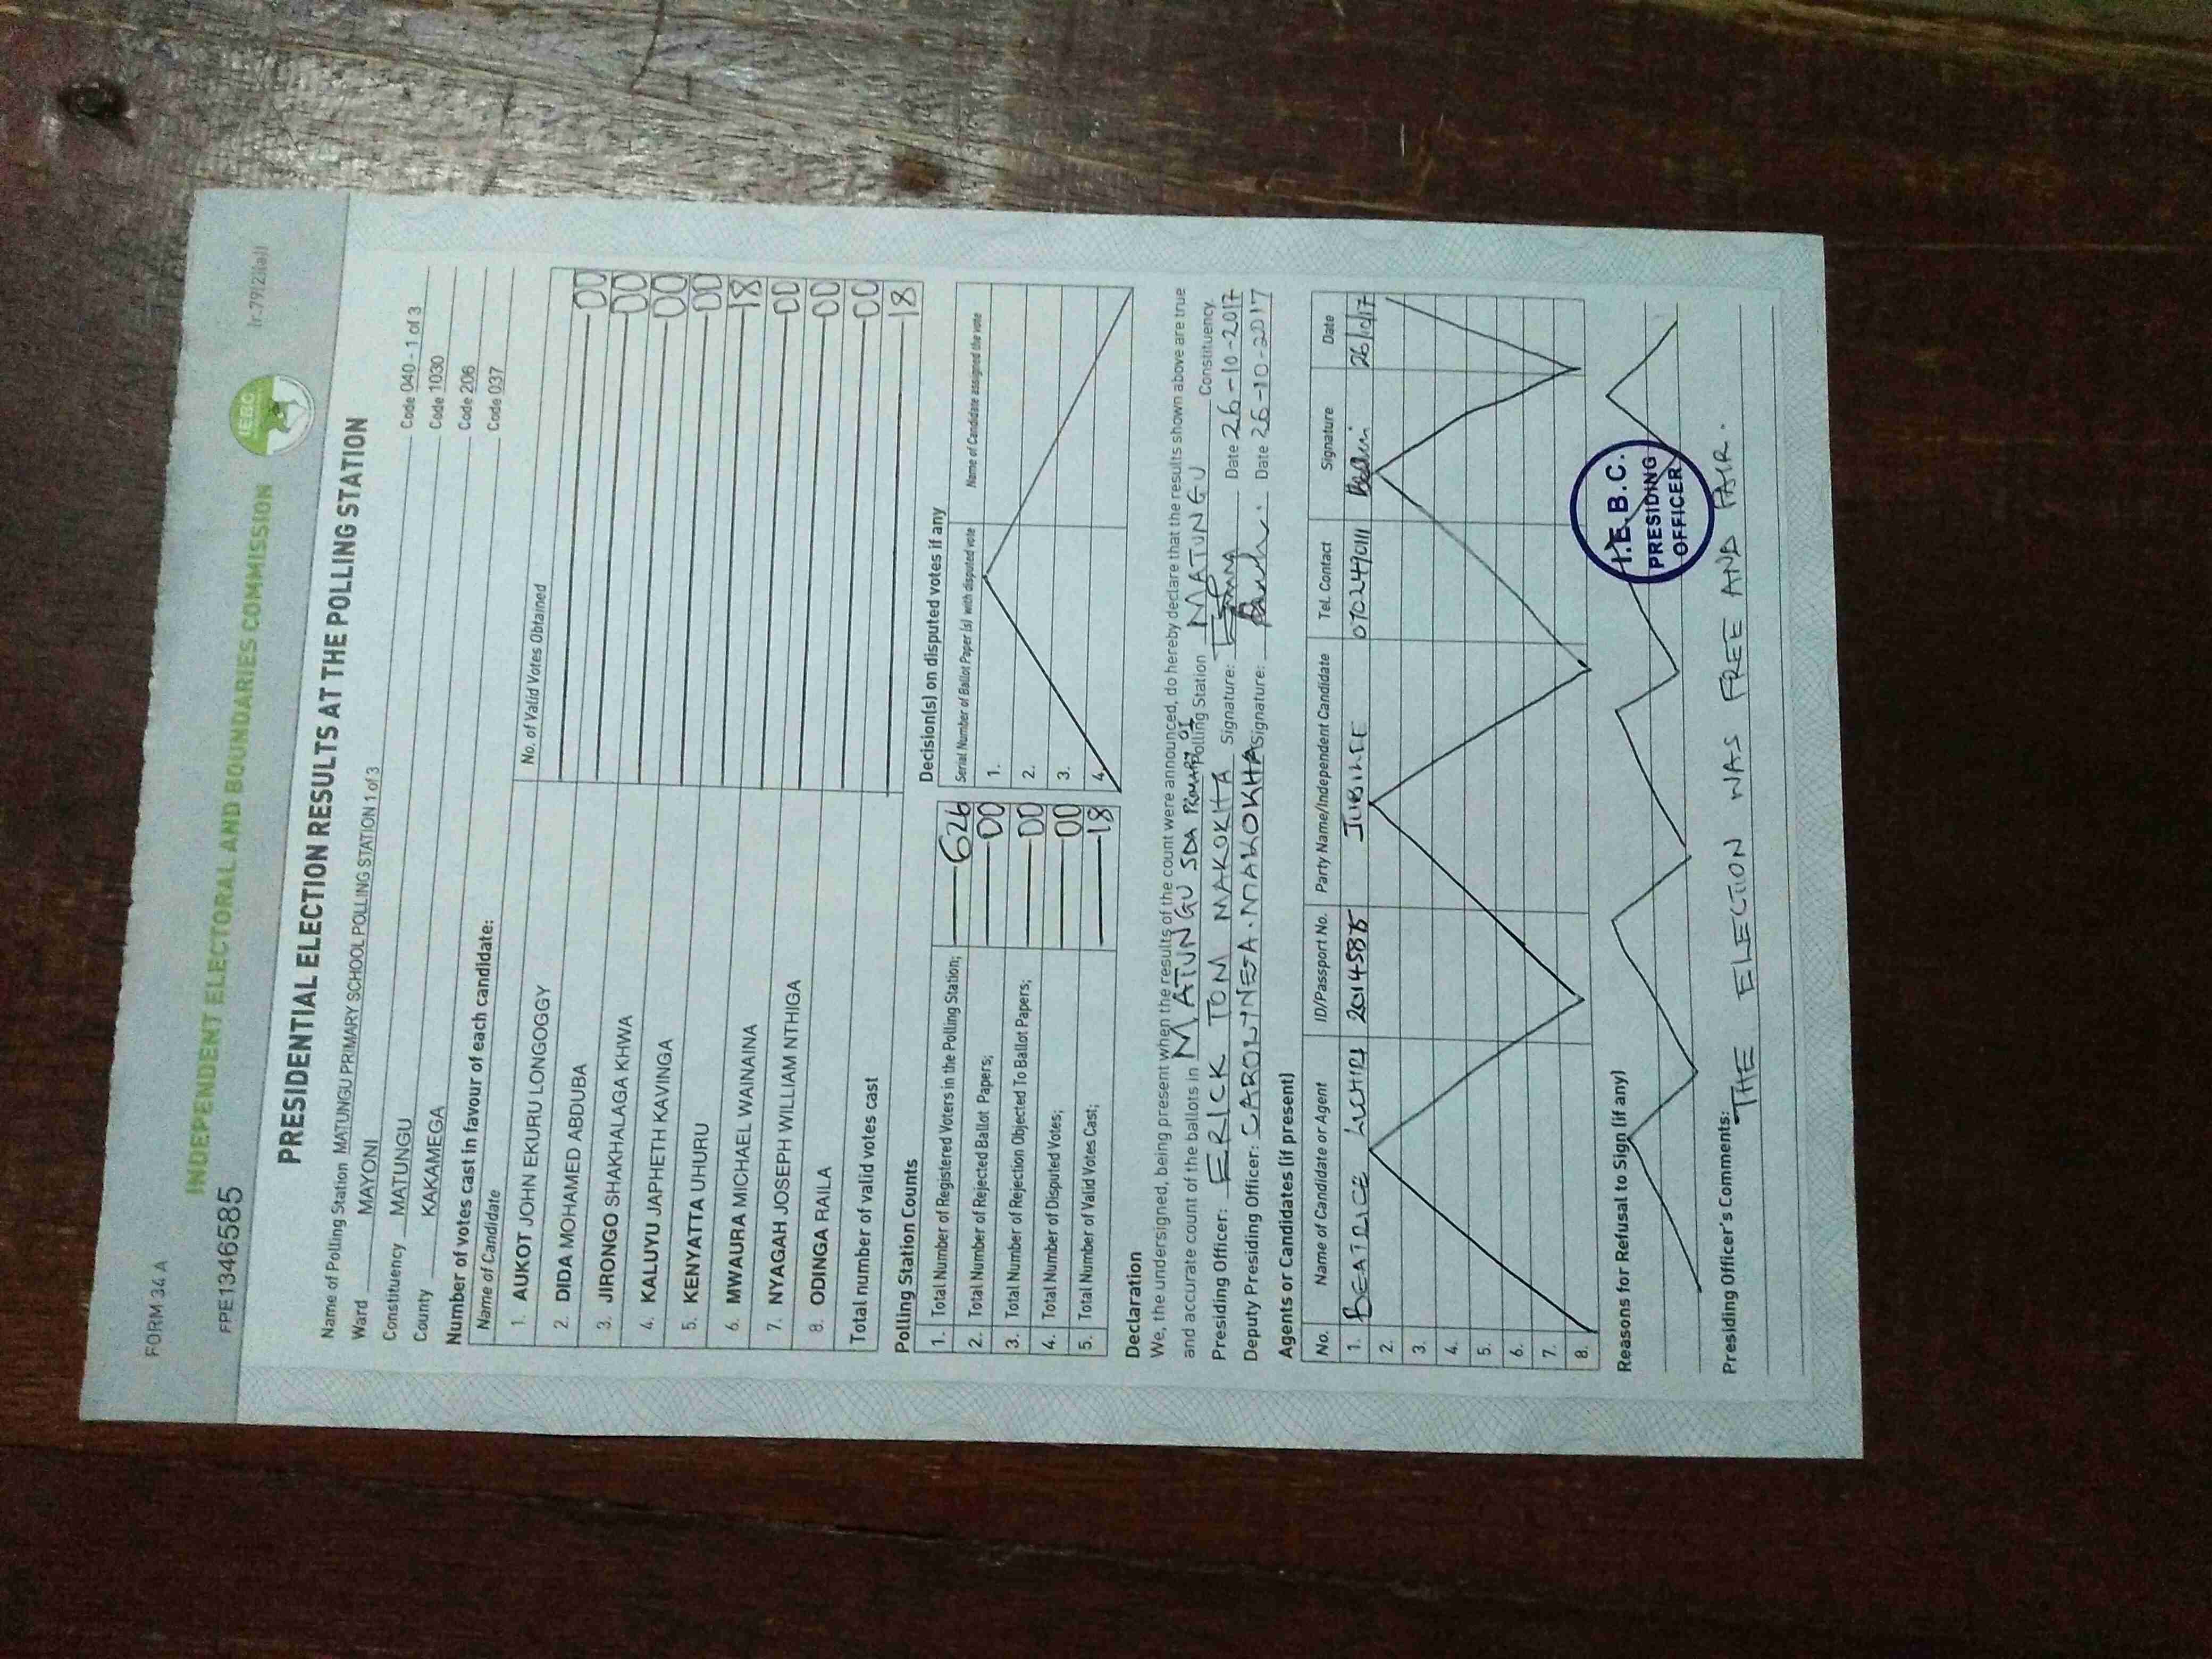 FORM 34 A
INDEPENDENT ELECTORAL AND BOUNDARIES COMMISSION
IEBC
FPE1346585
PRESIDENTIAL ELECTION RESULTS AT THE POLLING STATION
Name of Polling Station MATUNGU PRIMARY SCHOOL POLLING STATION 1 of 3 Code 040 - 1 of 3
Ward MAYONI Code 1030
Constituency MATUNGU Code 206
County KAKAMEGA Code 037
Number of votes cast in favour of each candidate:
Name of Candidate No. of Valid Votes Obtained
1. AUKOT JOHN EKURU LONGOGGY 00
2. DIDA MOHAMED ABDUBA 00
3. JIRONGO SHAKHALAGA KHWA 00
4. KALUYU JAPHETH KAVINGA 00
5. KENYATTA UHURU 18
6. MWAURA MICHAEL WAINAINA 00
7. NYAGAH JOSEPH WILLIAM NTHIGA 00
8. ODINGA RAILA 00
Total number of valid votes cast 18
Polling Station Counts
1. Total Number of Registered Voters in the Polling Station; 626
2. Total Number of Rejected Ballot Papers; 00
3. Total Number of Rejection Objected To Ballot Papers; 00
4. Total Number of Disputed Votes; 00
5. Total Number of Valid Votes Cast; 18
Decision(s) on disputed votes if any
Serial Number of Ballot Paper (s) with disputed vote Name of Candidate assigned the vote
1.
2.
3.
4.
Declaration
We, the undersigned, being present when the results of the count were announced, do hereby declare that the results shown above are true
and accurate count of the ballots in MATUNGU SDA PRIMARY Polling Station MATUNGU Constituency.
Presiding Officer: ERICK TOM MAKOKHA Signature: Date 26-10-2017
Deputy Presiding Officer: A. MAKOKHA Signature: Date 26-10-2017
Agents or Candidates (if present)
No. Name of Candidate or Agent ID/Passport No. Party Name/Independent Candidate Tel. Contact Signature Date
1. BEATRICE JUBILEE 26/10/17
2.
3.
4.
5.
6.
7.
8.
Reasons for Refusal to Sign (if any)
I.E.B.C.
PRESIDING
OFFICER
Presiding Officer's Comments:
THE ELECTION WAS FREE AND FAIR.